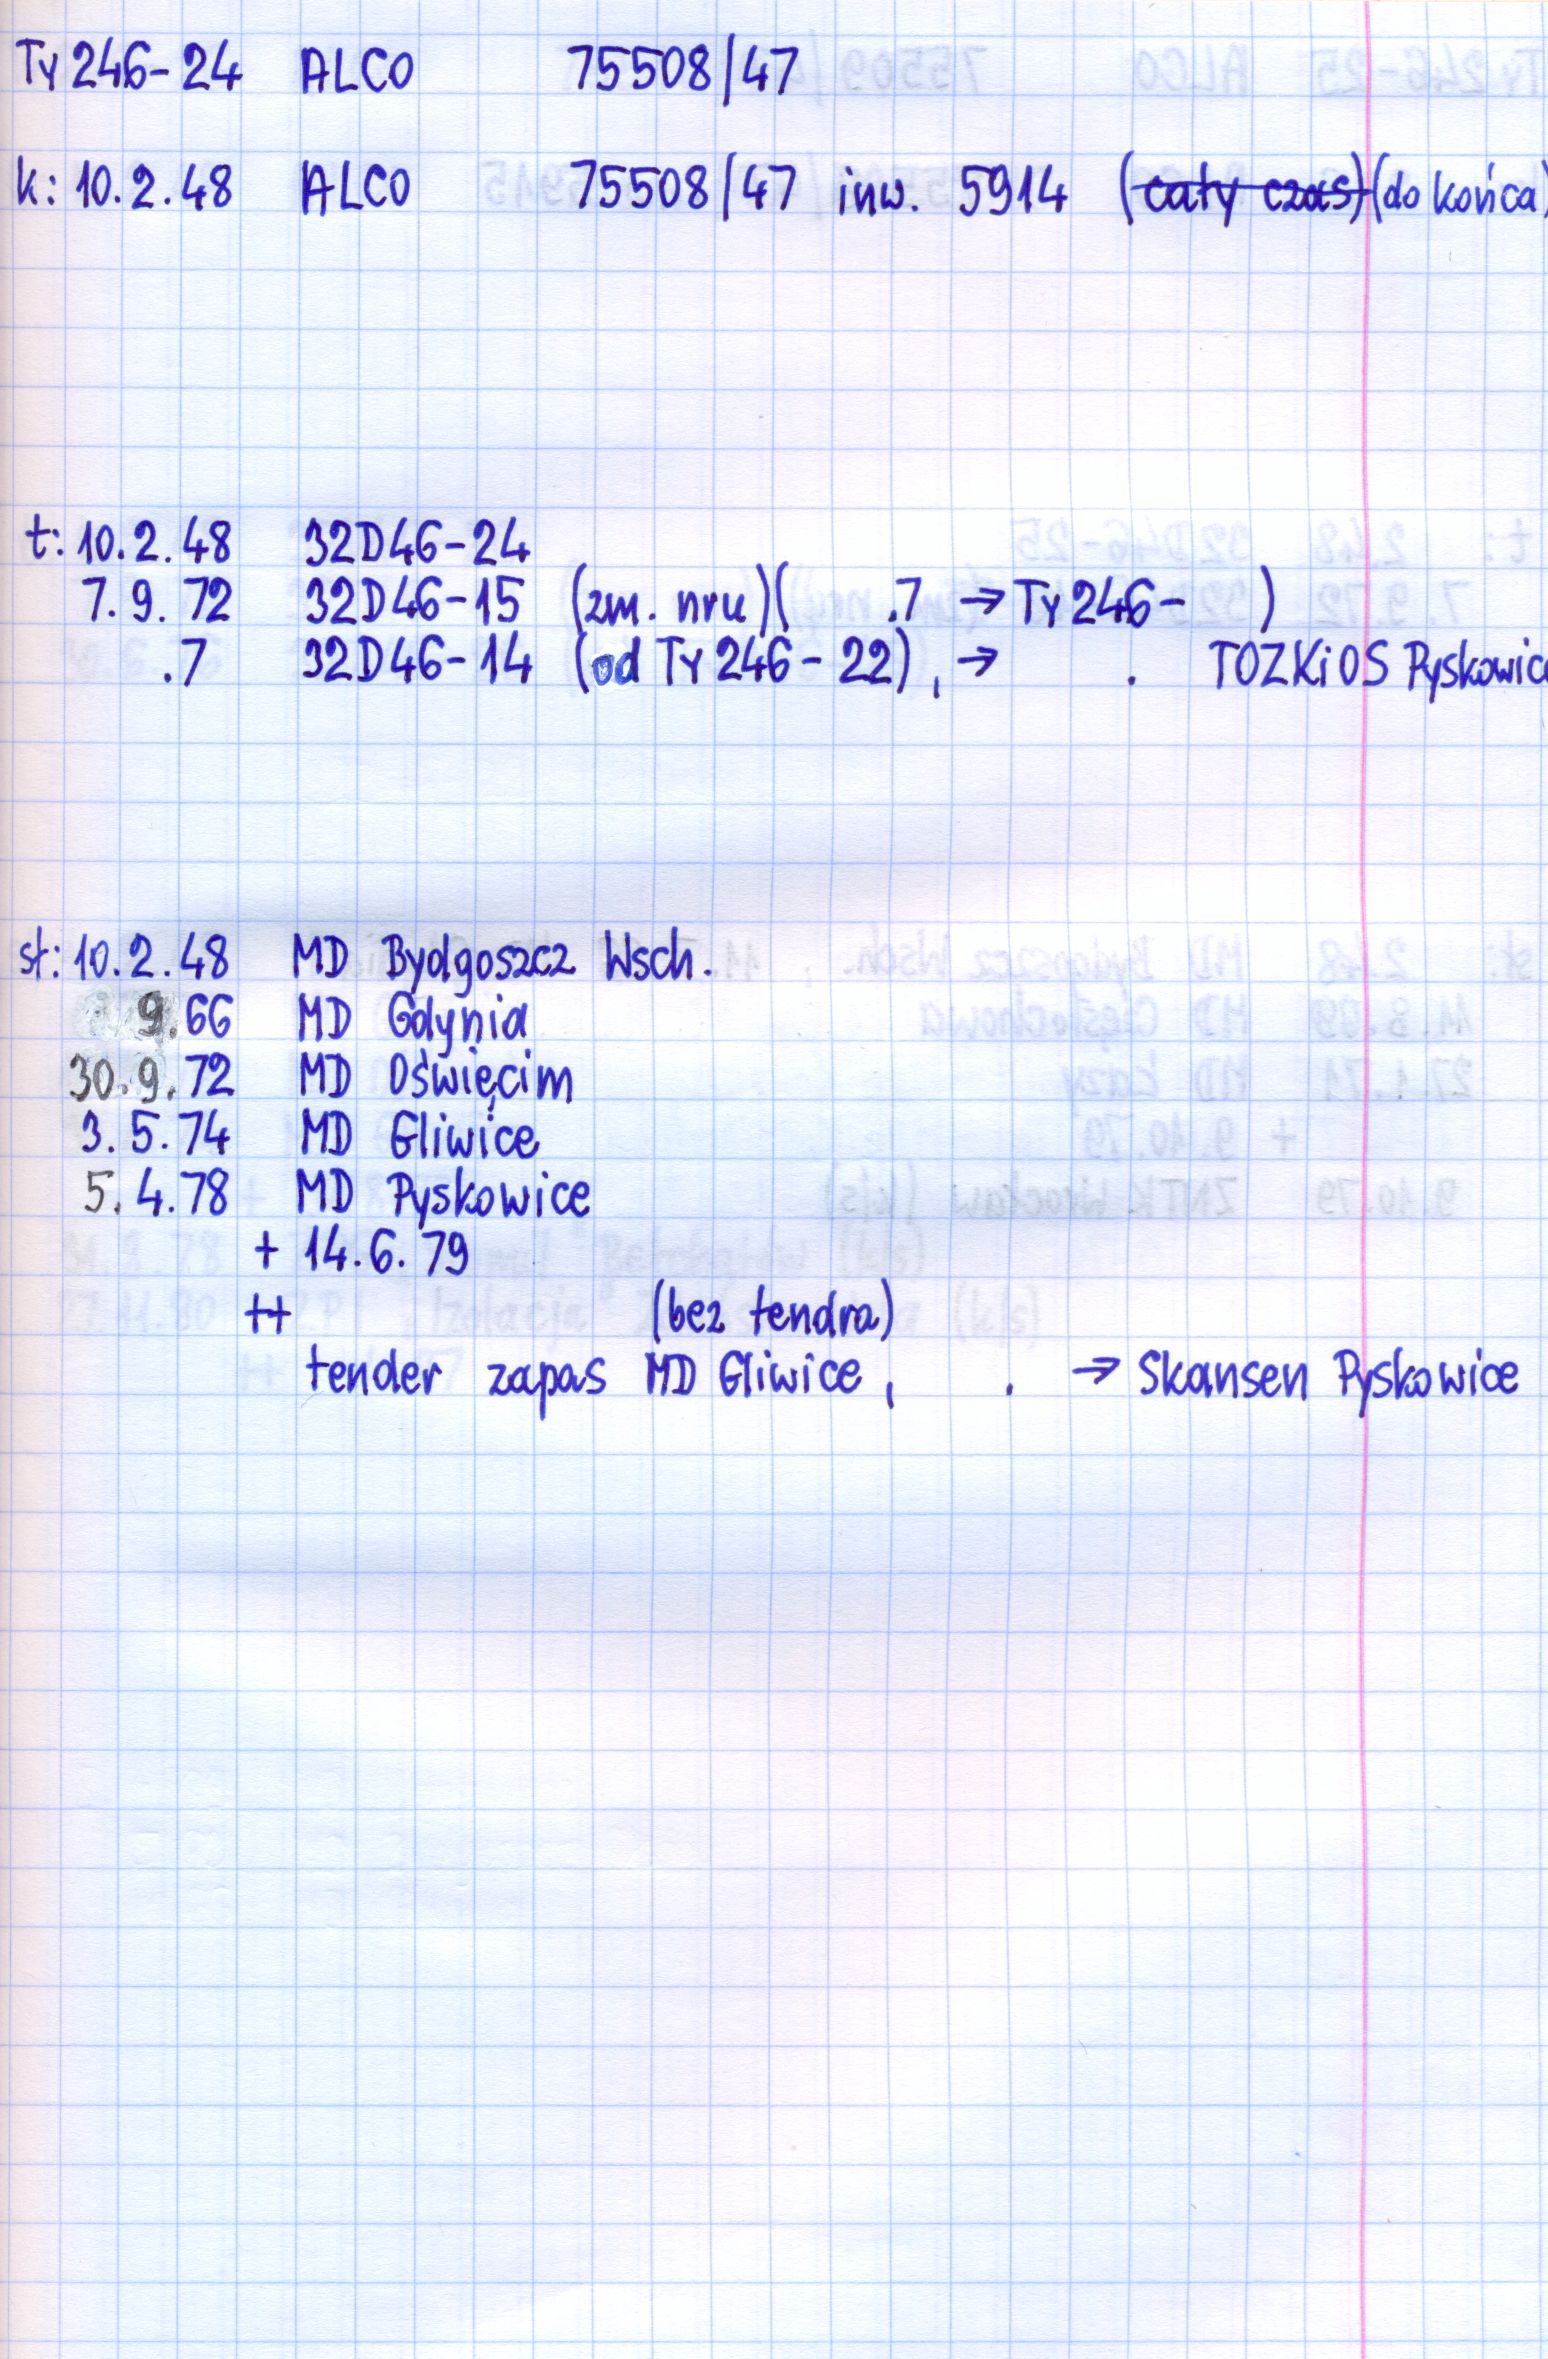 Ty 246-24 ALCO 75508/47
k: 10.2.48 ALCO 75508/47 inw. 5914 (cały czas) (do końca)
t: 10.2.48 32D46-24
7.9.72 32D46-15 (zm. nru) ( .7 → Ty 246- )
.7 32D46-14 (od Ty 246-22), → . TOZKiOS Pyskowice
st: 10.2.48 MD Bydgoszcz Wsch.
9.66 MD Gdynia
30.9.72 MD Oświęcim
3.5.74 MD Gliwice
5.4.78 MD Pyskowice
+ 14.6.79
++ (bez tendra)
tender zapas MD Gliwice, . → Skansen Pyskowice